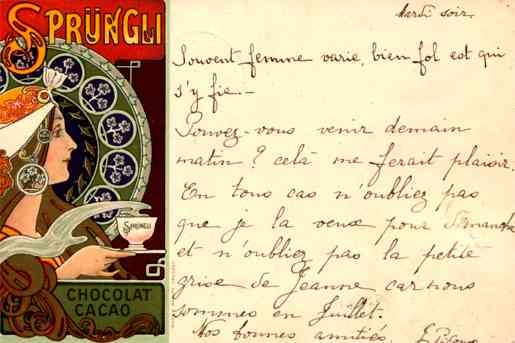 SPRÜNGLI
SPRÜNGLI
CHOCOLAT
CACAO
Mardi soir.
Souvent femme varie, bien fol est qui
s'y fie.—
Pouvez-vous venir demain
matin? celà me ferait plaisir.
En tous cas n'oubliez pas
que je la veux pour Dimanche
et n'oubliez pas la petite
grise de Jeanne car nous
sommes en Juillet.
Nos bonnes amitiés.